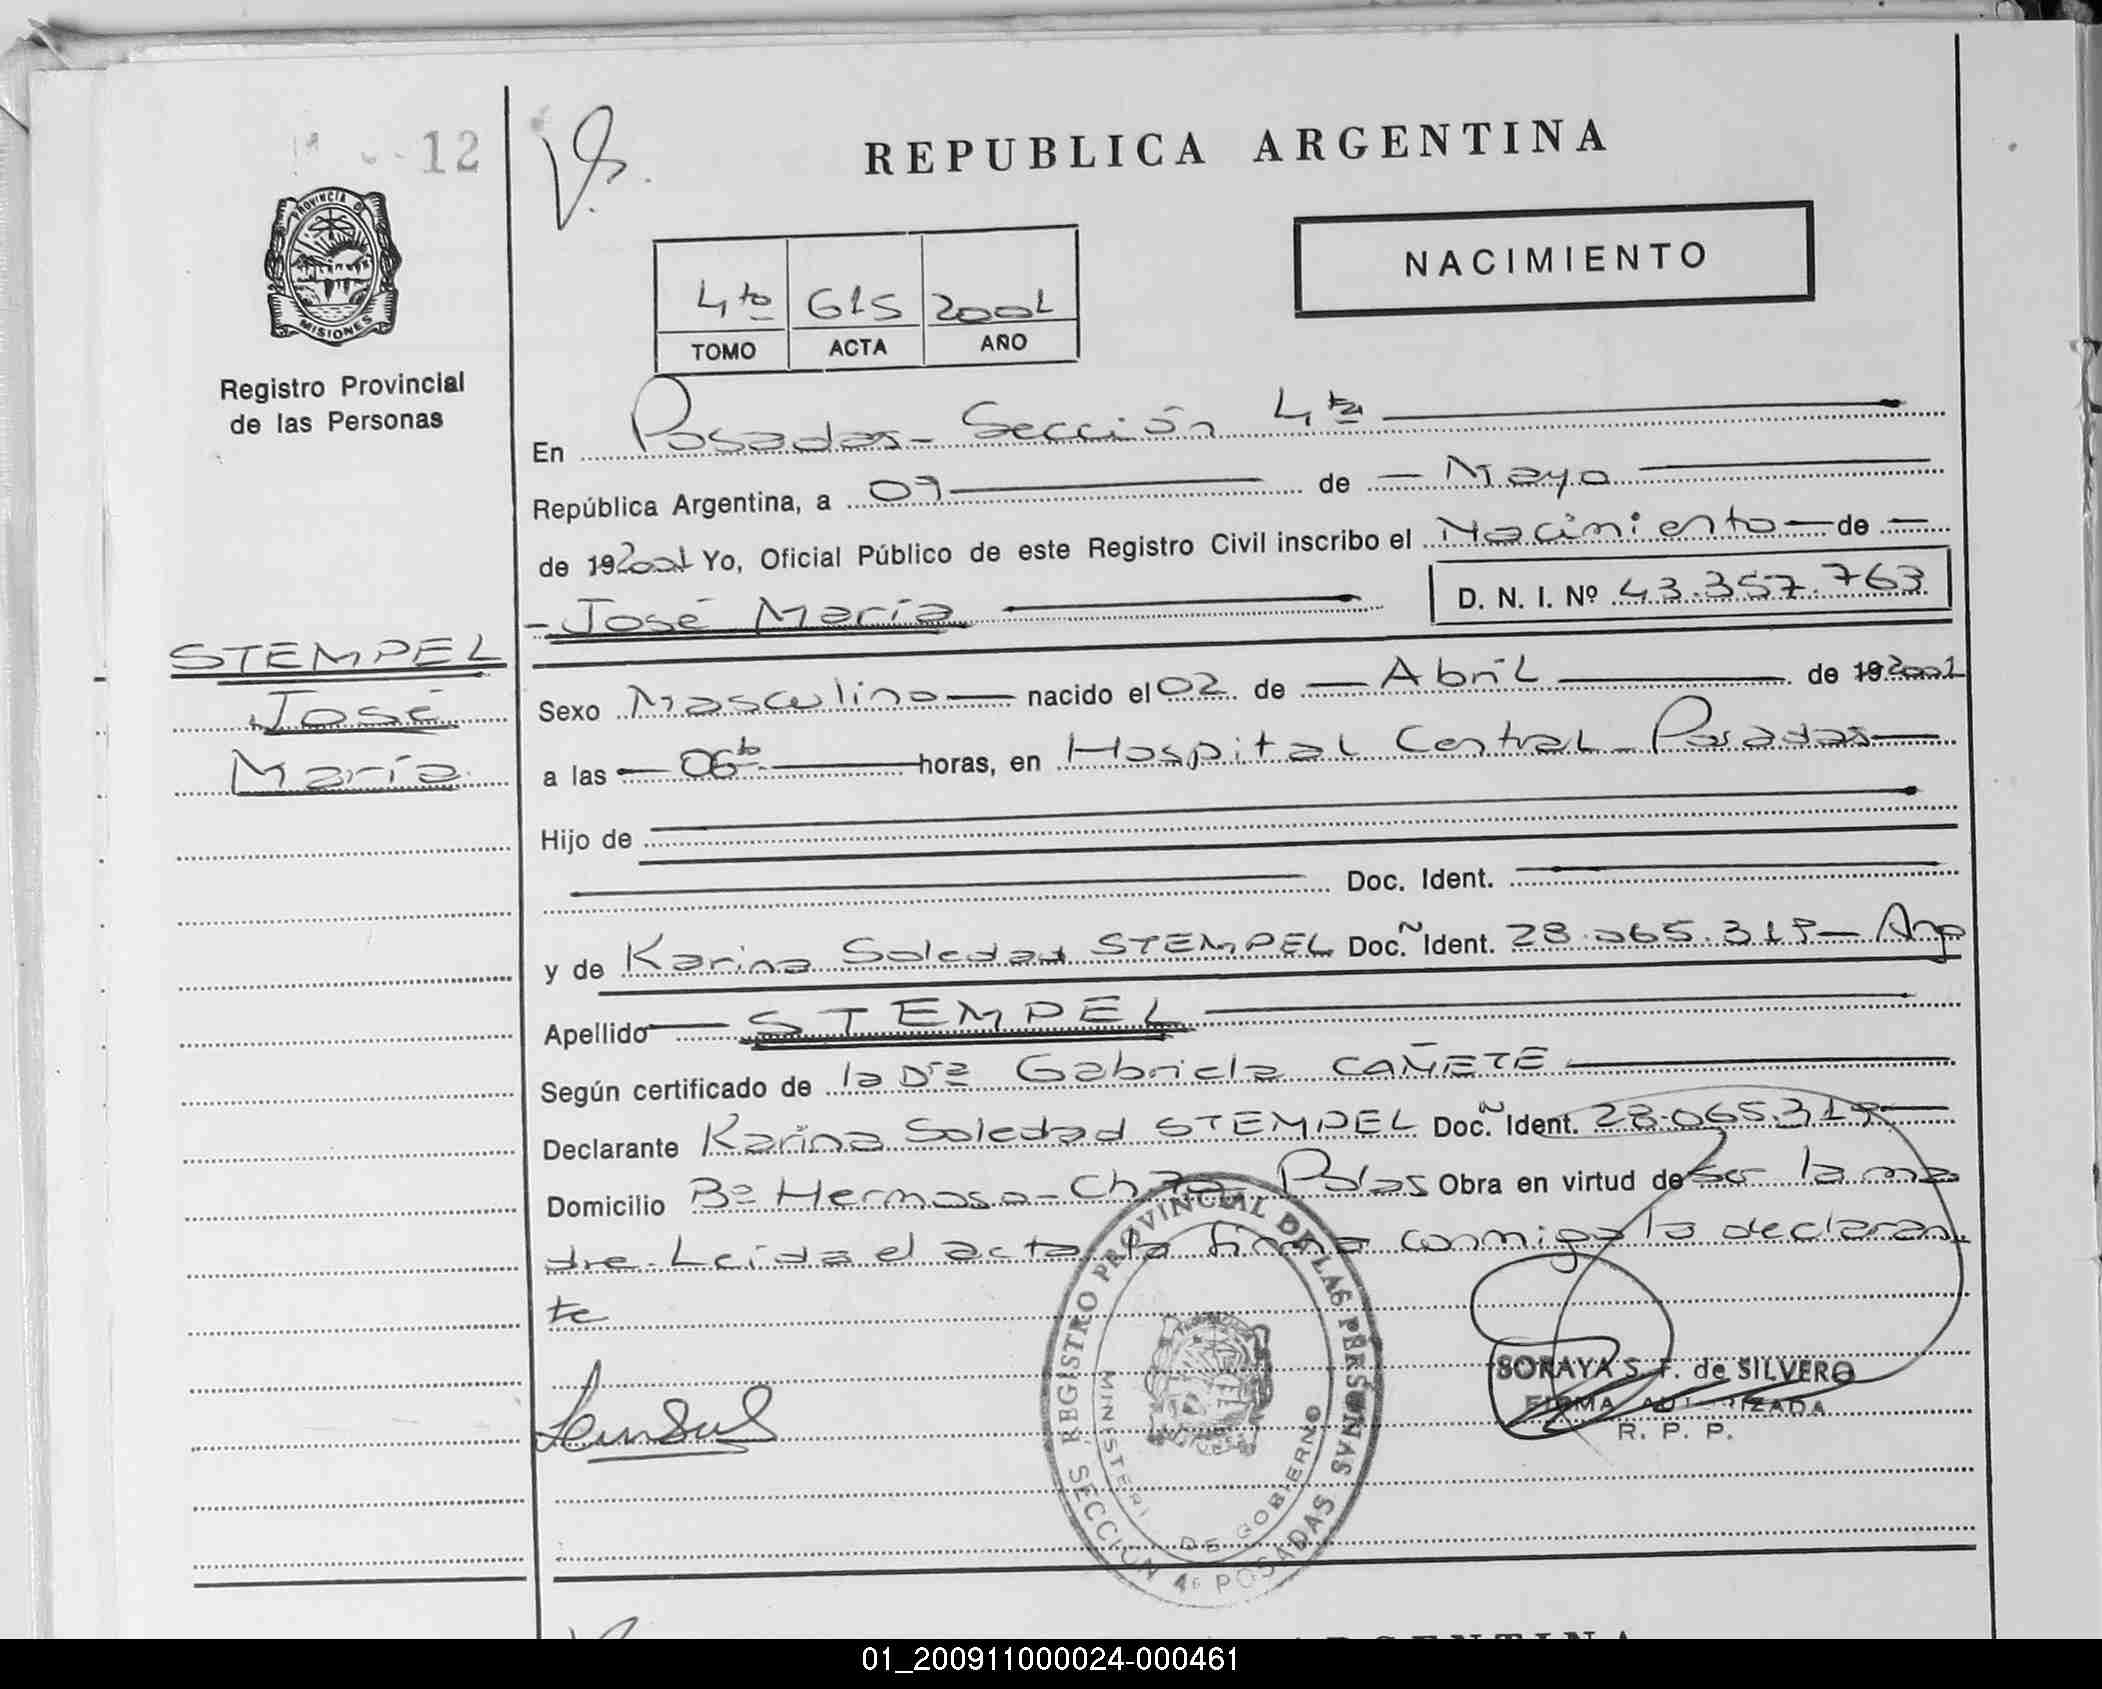 12
REPUBLICA ARGENTINA
PROVINCIA DE
MISIONES
NACIMIENTO
4to 615 2001
TOMO ACTA AÑO
Registro Provincial
de las Personas
En Posadas - Sección 4ta
República Argentina, a 09 de Mayo
de 192001 Yo, Oficial Público de este Registro Civil inscribo el Nacimiento de
José María D. N. I. Nº 43.357.763
STEMPEL
José
María
Sexo Masculino nacido el 02 de Abril de 192001
a las 06 horas, en Hospital Central - Posadas
Hijo de
Doc. Ident.
y de Karina Soledad STEMPEL Doc. Ident. 28.065.319 - Arg
Apellido STEMPEL
Según certificado de la Dra Gabriela CAÑETE
Declarante Karina Soledad STEMPEL Doc. Ident. 28.065.319
Domicilio Bº Hermoso - Ch. Pdas Obra en virtud de ser la ma
dre. Leida el acta, la firma conmigo la declaran
te
REGISTRO PROVINCIAL DE LAS PERSONAS
MINISTERI DE GOBIERNO
SECCION 4ª POSADAS
SORAYA S. F. de SILVERO
FIRMA AUTORIZADA
R. P. P.
ARGENTINA
01_200911000024-000461